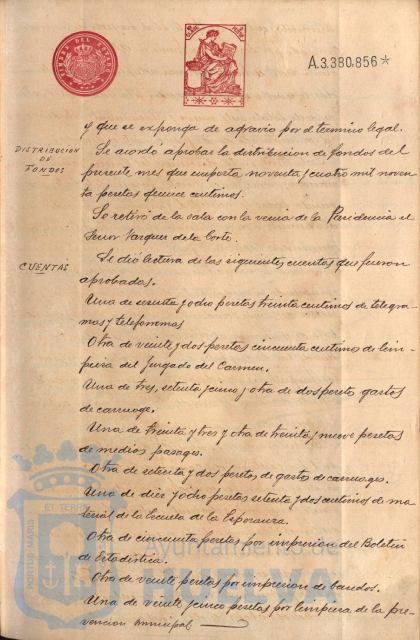 TIMBRE DEL ESTADO
A.3.380,856*
y que se exponga de agravio por el termino legal.
DISTRIBUCION
DE
FONDOS
Se acordó aprobar la distribucion de fondos del
presente mes que importa noventa y cuatro mil noven
ta pesetas quince centimos.
Se retiró de la sala con la venia de la Presidencia el
Señor Vazquez de la Corte.
CUENTAS
Se dió lectura de las siguientes cuentas que fueron
aprobadas.
Una de y ocho pesetas treinta centimos de telegra
mas y telefonemas
Otra de veinte y dos pesetas cincuenta centimos de lim
pieza del Juzgado del Carmen.
Una de tres, setenta y cinco y otra de dos pesetas gastos
de carruage.
Una de treinta y tres y otra de treinta y nueve pesetas
de medios pasages.
Otra de setenta y dos pesetas de gastos de carruages.
Una de diez y ocho pesetas setenta y dos centimos de ma
terial de la Escuela de la Esperanza.
Otra de cincuenta pesetas por impresion del Boletin
de Estadistica.
Otra de veinte pesetas por impresion de bandos.
Una de veinte y cinco pesetas por limpieza de la pre
vencion municipal
PORTUS MARIS ET TERRAE
Ayuntamiento de
HUELVA